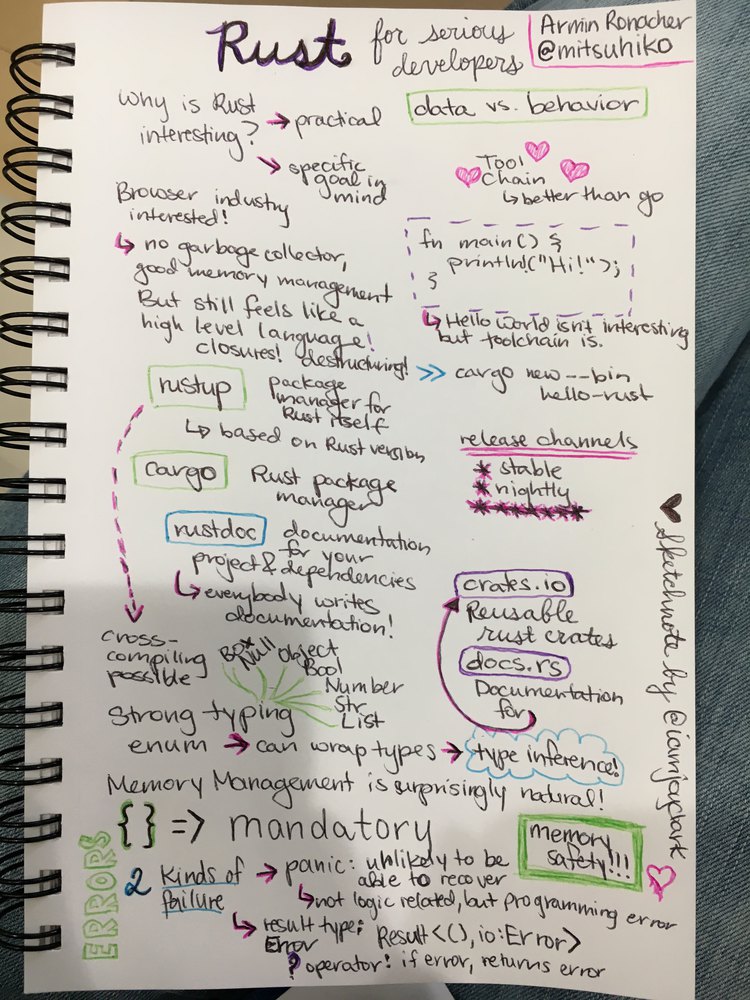 Rust for serious
developers
Armin Ronacher
@mitsuhiko
Why is Rust
interesting? → practical
→ specific
goal in
mind
data vs. behavior
Tool
Chain
↳ better than go
Browser industry
interested!
↳ no garbage collector,
good memory management
But still feels like a
high level language!
closures! destructuring!
fn main() {
println!("Hi!");
}
↳ Hello World isn't interesting
but toolchain is.
>> cargo new --bin
hello-rust
rustup package
manager for
Rust itself
↳ based on Rust version
cargo Rust package
manager
release channels
* stable
* nightly
*******
rustdoc documentation
for your
project & dependencies
↳ everybody writes
documentation!
cross-
compiling
possible
crates.io
Reusable
rust crates
docs.rs
Documentation
for
Box
Null
Object
Bool
Number
Str
List
Strong typing
enum → can wrap types → type inference!
Memory Management is surprisingly natural!
{} => mandatory
memory
safety!!!
ERRORS
2 Kinds of
failure
→ panic: unlikely to be
able to recover
↳ not logic related, but programming error
↳ result type:
Error
Result<(), io:Error>
? operator! if error, returns error
♥ Sketchnote by @iamjaydark